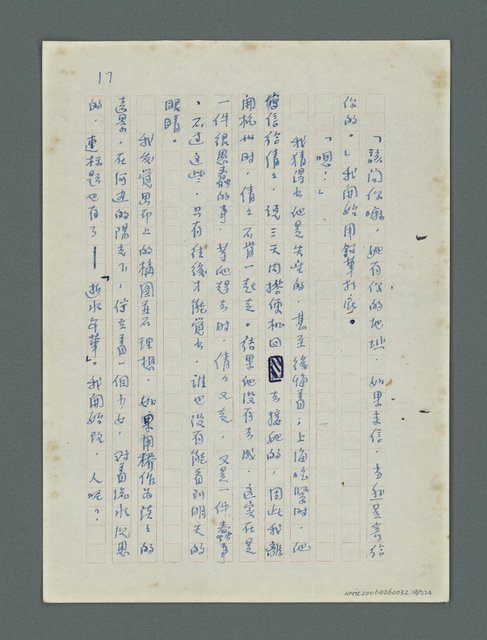 17
「該問你嘛,她有你的地址,如果來信,當然是寄給
你的。」我開始用鉛筆打底。
「唔!」
我猜得出他是失望的,甚至後悔着;上海吃緊時,他
寫信給倩倩,說三天內搭便机回去接她的,因此我離
開杭州時,倩倩不肯一起走。結果他沒有去成,這实在是
一件很愚蠢的事,等他趕去時,倩倩又走,又是一件蠢事
,不过这些,只有往後才能覚出,誰也沒有能看到明天的
眼睛。
我発覚画布上的構图並不理想,如果用橋作為談談的
遠景,在河边的陽光下,佇立着一個少女,对着流水沉思
的,連标題也有了——「逝水年華」。我開始改,人呢?
NMTL20060260032.18/224